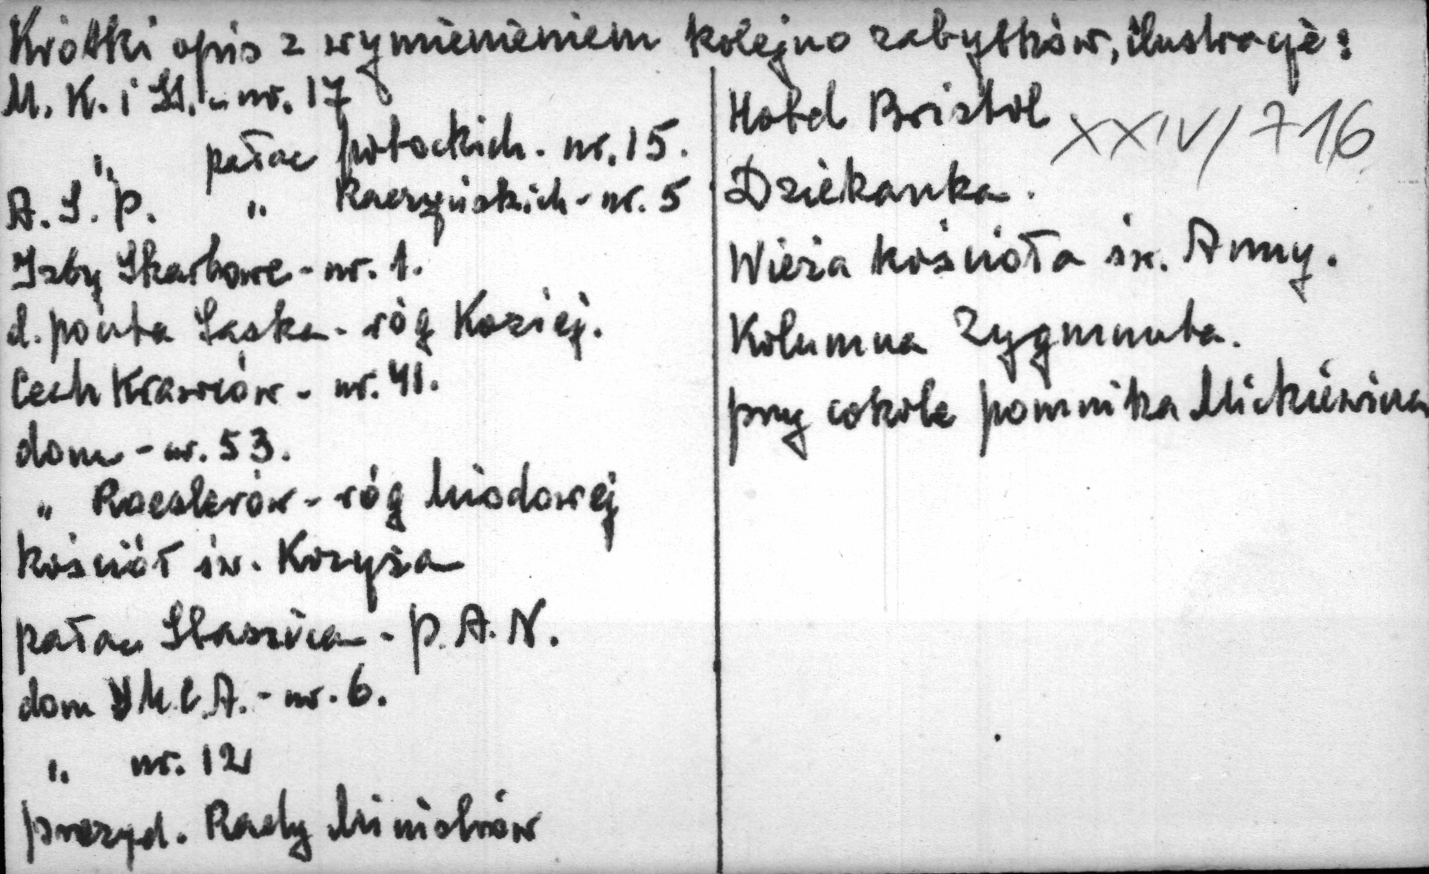 Krótki opis z wymienieniem kolejno zabytków, ilustracje:
M. K. i Sz. - nr. 17
„ pałac Potockich - nr. 15.
A. S. P. „ Raczyńskich - nr. 5
Izby Skarbowe - nr. 1.
d. poczta Saska - róg Koziej.
Cech Krawców - nr. 41.
dom - nr. 53.
„ Roeslerów - róg Miodowej
kościół św. Krzyża
pałac Staszica - P. A. N.
dom YMCA. - nr. 6.
„ nr. 12
prezyd. Rady Ministrów
Hotel Bristol
XXIV/716
Dziekanka.
Wieża kościoła św. Anny.
Kolumna Zygmunta.
przy cokole pomnika Mickiewicza